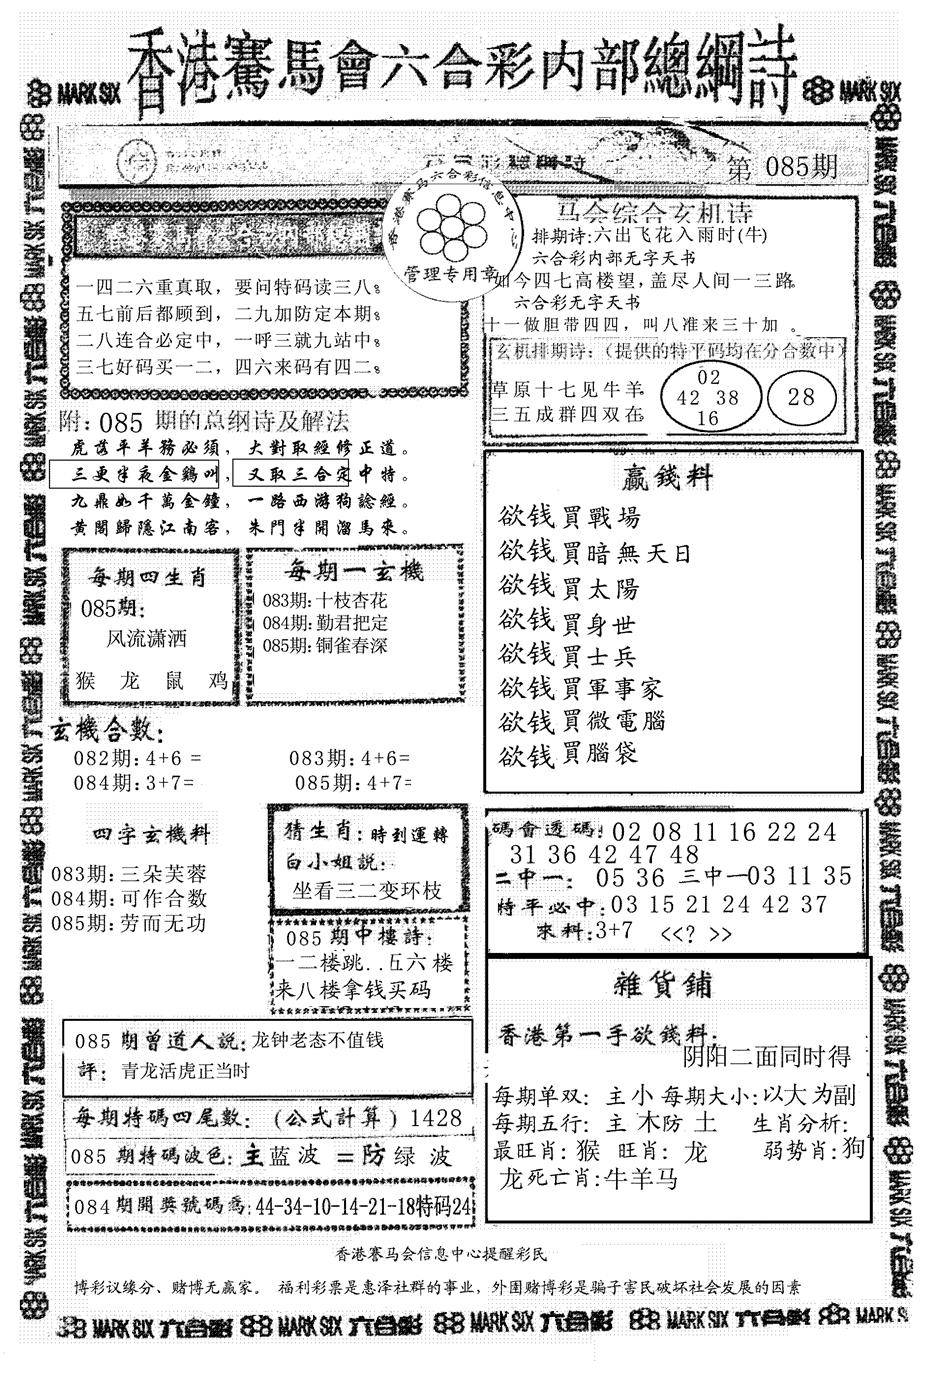 香港賽馬會六合彩内部總綱詩
MARK SIX
MARK SIX
第 085期
香港赛马六合彩信息中心
管理专用章
一四二六重真取，要问特码读三八。
五七前后都顾到，二九加防定本期。
二八连合必定中，一呼三就九站中。
三七好码买一二，四六来码有四二。
马会综合玄机诗
排期诗:六出飞花入雨时(牛)
六合彩内部无字天书
如今四七高楼望，盖尽人间一三路
六合彩无字天书
十一做胆带四四，叫八准来三十加 。
玄机排期诗:（提供的特平码均在分合数中）
草原十七见牛羊
三五成群四双在
02
42 38
16
28
附: 085 期的总纲诗及解法
虎落平羊務必須，大對取經修正道。
三更半夜金鷄叫，又取三合定中特。
九鼎如千萬金鐘，一路西游狗諗經。
黄閣歸隱江南客，朱門半開溜馬來。
每期四生肖
085期:
风流潇洒
猴 龙 鼠 鸡
每期一玄機
083期:十枝杏花
084期:勤君把定
085期:铜雀春深
贏錢料
欲钱買戰場
欲钱買暗無天日
欲钱買太陽
欲钱買身世
欲钱買士兵
欲钱買軍事家
欲钱買微電腦
欲钱買腦袋
玄機合數:
082期:4+6 =
083期:4+6=
084期:3+7=
085期:4+7=
四字玄機料
083期:三朵芙蓉
084期:可作合数
085期:劳而无功
猜生肖:時到運轉
白小姐説:
坐看三二变环枝
085 期中樓詩:
一二楼跳..五六楼
来八楼拿钱买码
碼會透碼:02 08 11 16 22 24
31 36 42 47 48
二中一: 05 36 三中一03 11 35
特平必中:03 15 21 24 42 37
來料:3+7 <<? >>
雜貨鋪
香港第一手欲錢料:
阴阳二面同时得
每期单双: 主小 每期大小:以大为副
每期五行: 主 木防 土 生肖分析:
最旺肖: 猴 旺肖: 龙 弱势肖:狗
龙死亡肖:牛羊马
085 期曾道人説:龙钟老态不值钱
評: 青龙活虎正当时
每期特碼四尾數: (公式計算) 1428
085 期特碼波色:主蓝波 =防绿 波
084期開獎號碼爲:44-34-10-14-21-18特码24
香港赛马会信息中心提醒彩民
博彩议缘分、赌博无赢家。 福利彩票是惠泽社群的事业，外围赌博彩是骗子害民破坏社会发展的因素
MARK SIX 六合彩 MARK SIX 六合彩 MARK SIX 六合彩 MARK SIX 六合彩 MARK SIX